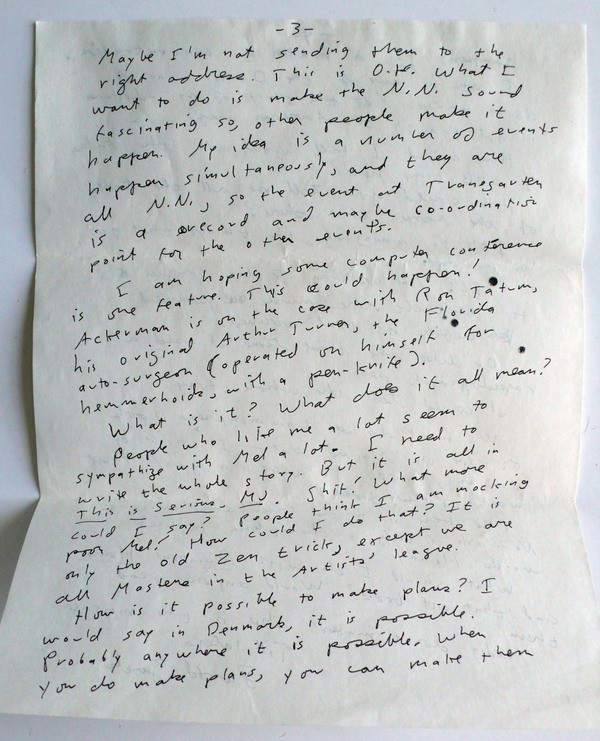 -3-
Maybe I'm not sending them to the
right address. This is O.K. What I
want to do is make the N.N. sound
fascinating so, other people make it
happen. My idea is a number of events
happen simultaneously, and they are
all N.N., so the event at Tranegarten
is a record and maybe co-ordination
point for the other events.
I am hoping some computer conference
is one feature. This could happen!
Ackerman is on the case with Ron Tatum,
his original Arthur Turner, the Florida
auto-surgeon (operated on himself for
hemmerhoids, with a pen-knife).
What is it? What does it all mean?
People who like me a lot seem to
sympathize with Mel a lot. I need to
write the whole story. But it is all in
This is Serious, MJ. Shit! What more
could I say? People think I am mocking
poor Mel! How could I do that? It is
only the old Zen trick, except we are
all Masters in the Artists' league.
How is it possible to make plans? I
would say in Denmark, it is possible.
Probably anywhere it is possible. When
you do make plans, you can make them